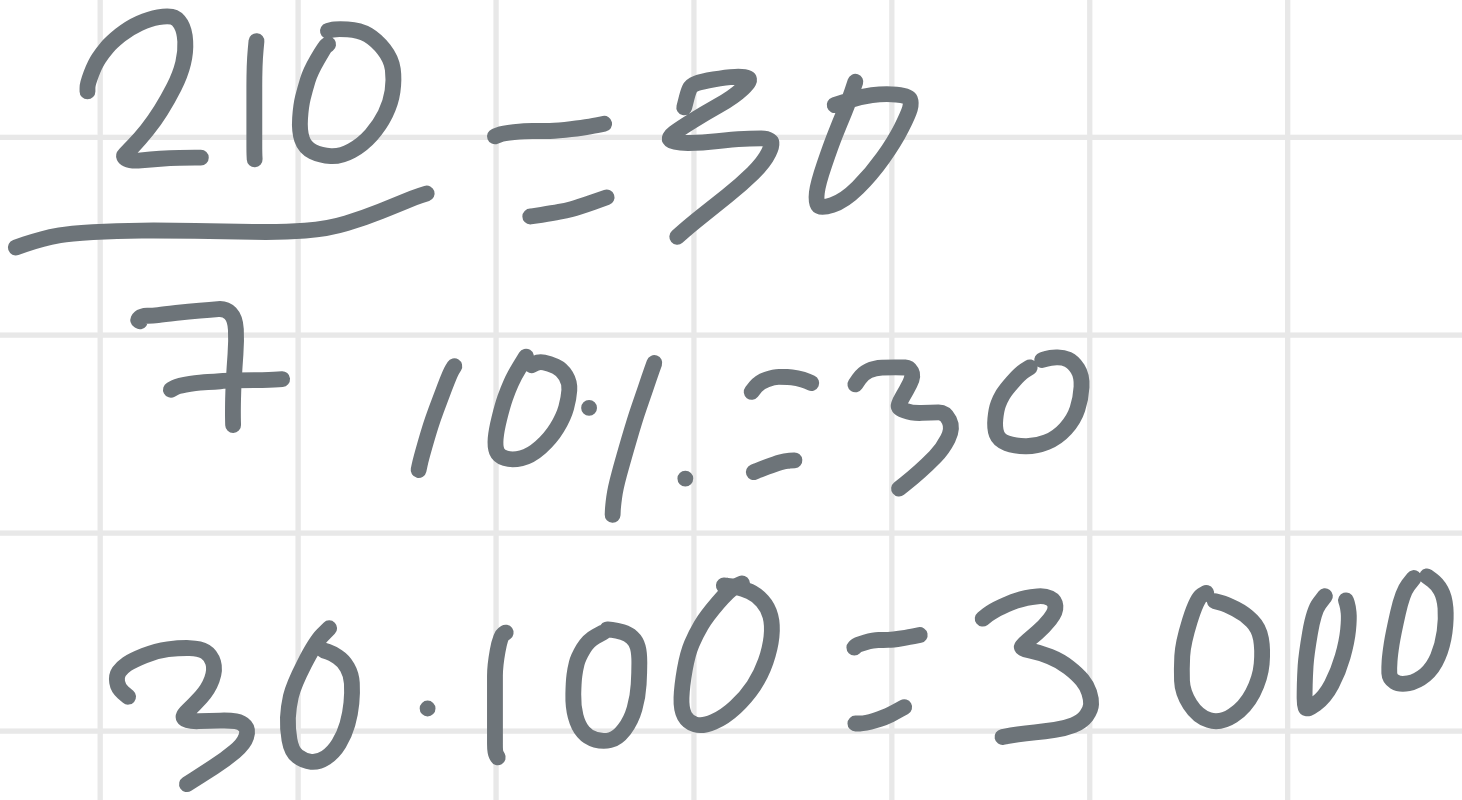 210
= 30
7
10% = 30
30 · 100 = 3 000